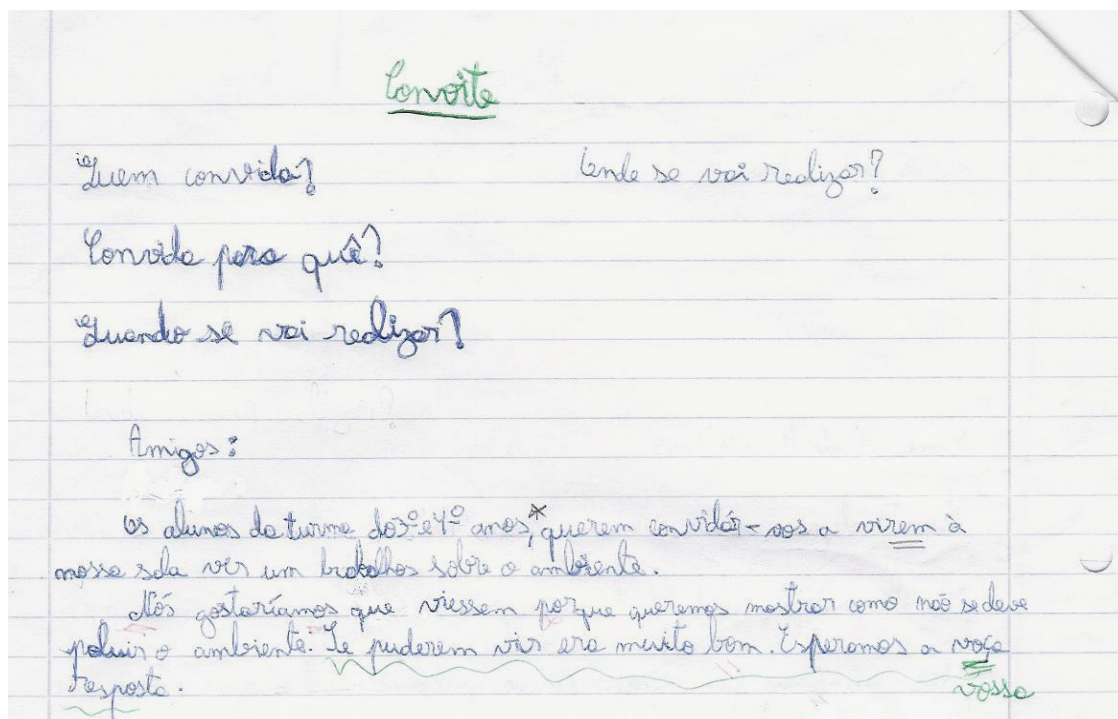 Convite
Quem convida? Onde se vai realizar?
Convida para quê?
Quando se vai realizar?
Amigos:
Os alunos da turma do 3º e 4º anos,* querem convidár-vos a virem à
nossa sala ver um trabalhos sobre o ambiente.
Nós gostaríamos que viessem porque queremos mostrar como não se deve
poluir o ambiente. Se puderem vir era muito bom. Esperamos a voça
resposta. vossa